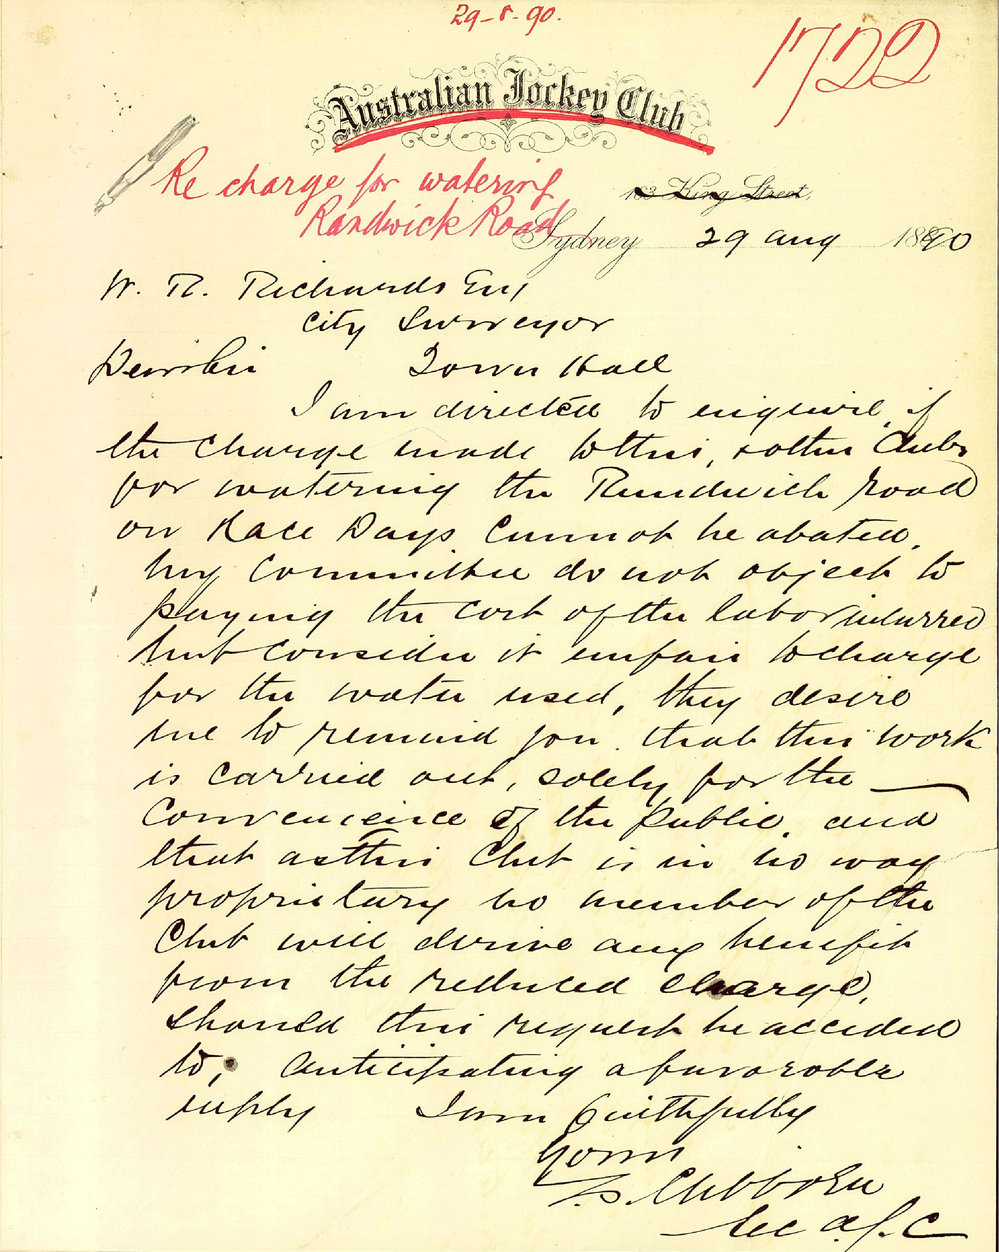 29-8-90.
1722
Australian Jockey Club
Re charge for watering
Randwick Road
133 King Street,
Sydney 29 aug 1890
W. R. Richards Esq
City Surveyor
Dear Sir Town Hall
I am directed to enquire, if
the charge made to this, & other Clubs
for watering the Randwick road
on Race Days cannot be abated,
my Committee do not object to
paying the cost of the labor incurred
but consider it unfair to charge
for the water used, they desire
me to remind you that this work
is carried out, solely for the
Convenience of the public, and
that as this Club is in no way
proprietary no member of the
Club will derive any benefit
from the reduced charge,
should this request be acceded
to, anticipating a favorable
reply I am faithfully
Yours
T. S. Clibborn
Sec A.J.C